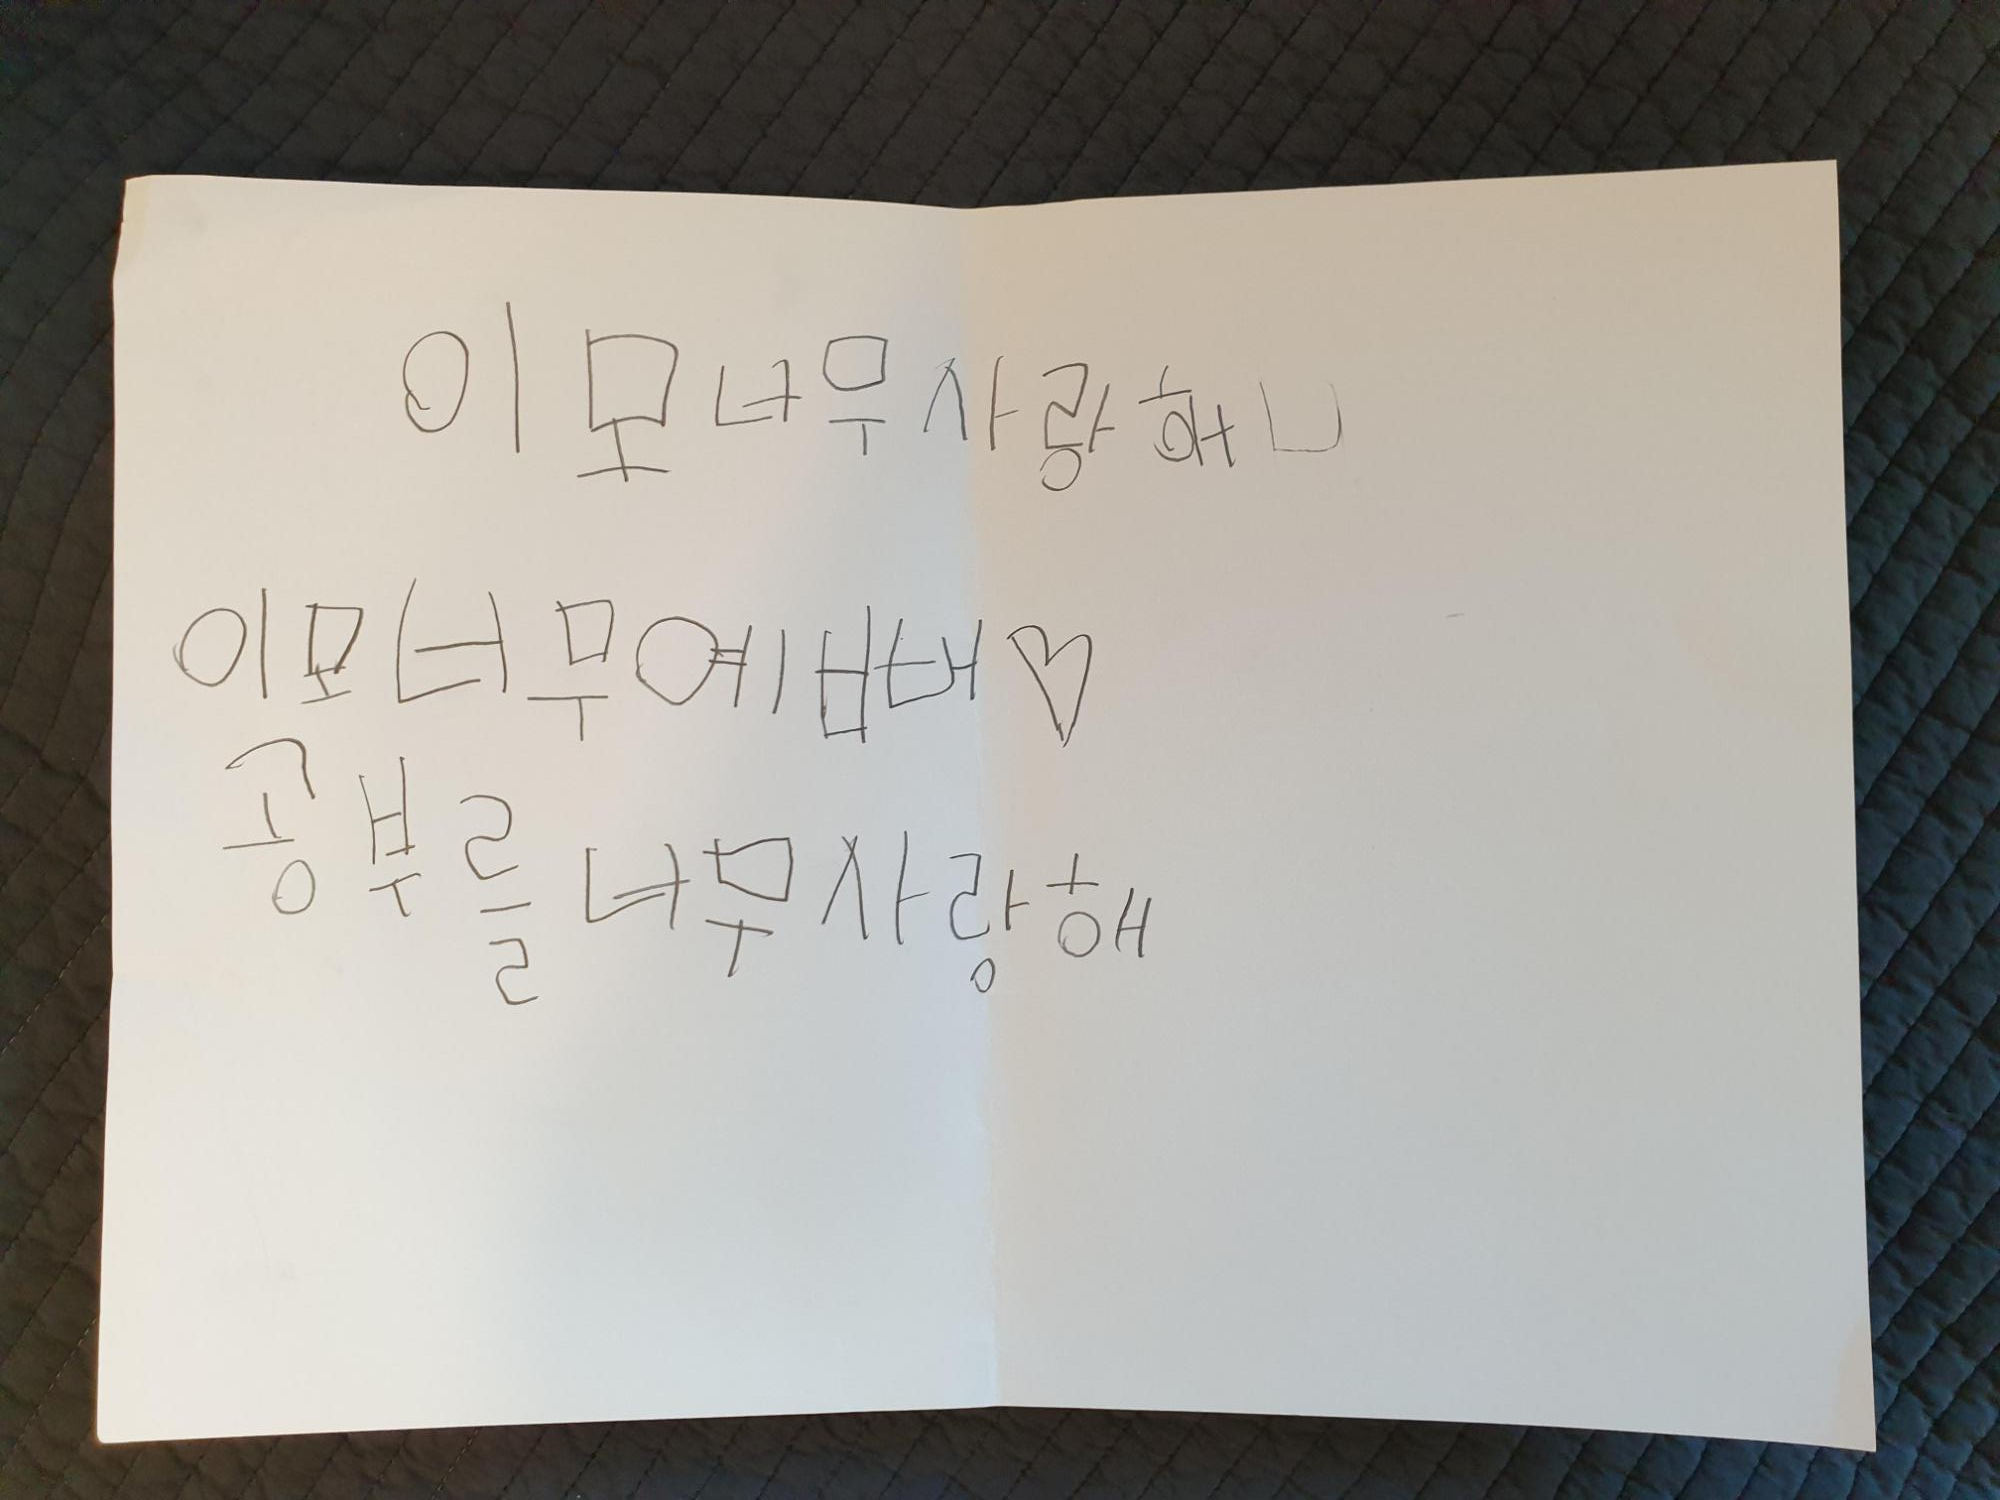 이모너무사랑해
이모너무예쁘대♡
공부를너무사랑해